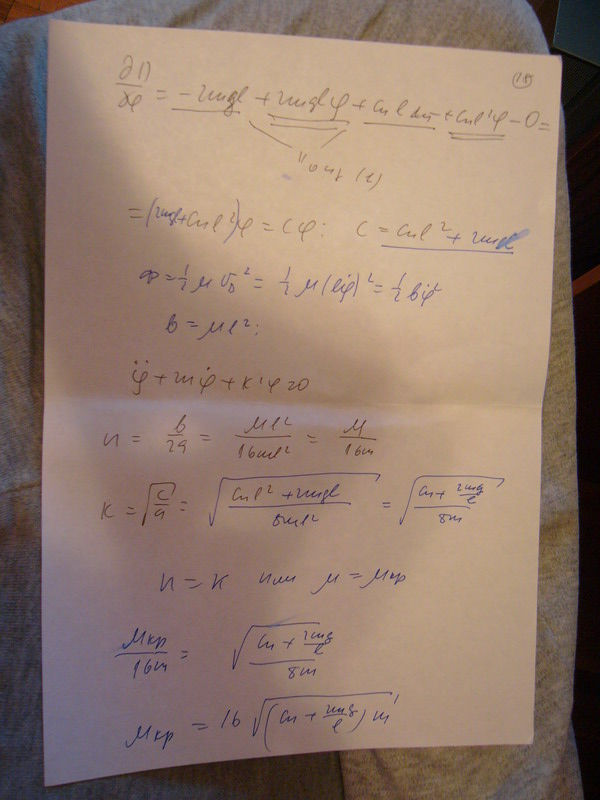 (25)
∂П/∂φ = −2mgl + 2mgl φ + cпl δст + cпl²φ − 0 =
= (2mgl + cпl²)φ = cφ: c = cпl² + 2mgl
Φ = ½ μ V_D² = ½ μ (lφ̇)² = ½ bφ̇²
b = μl²;
φ̈ + 2nφ̇ + k²φ = 0
n = b/2a = μl²/16ml² = μ/16m
k = √(c/a) = √((cпl² + 2mgl)/8ml²) = √((cп + 2mg/l)/8m)
n = k или μ = μкр
μкр/16m = √((cп + 2mg/l)/8m)
μкр = 16 √((cп + 2mg/l) m)